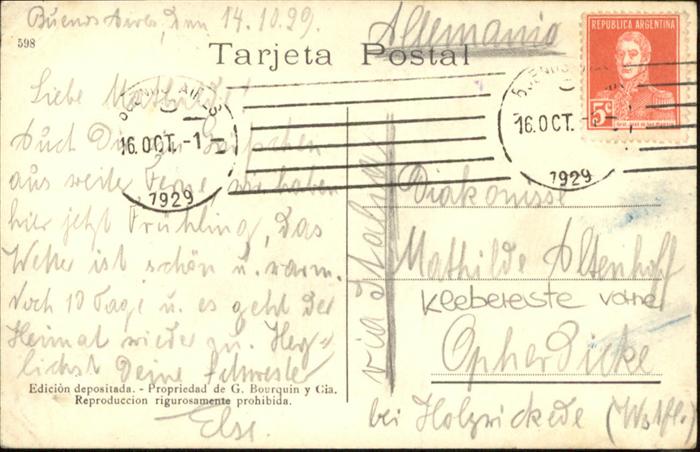 Buenos Aires, den 14.10.29.
Allemania
598
Tarjeta Postal
REPUBLICA ARGENTINA
5c
BUENOS AIRES
16.OCT. -1
1929
16.OCT. -1
1929
Liebe Mathilde!
Auch Dir ein Grüßchen
aus weiter Ferne, wir haben
hier jetzt Frühling, das
Wetter ist schön u. warm.
Noch 10 Tage u. es geht der
Heimat wieder zu. Herz-
lichst Deine Schwester
Else.
via Italia
Diakonisse
Mathilde Altenhoff
Klebereste vorne!
Opherdicke
bei Holzwickede (Wstfl.)
Edición depositada. - Propriedad de G. Bourquin y Cia.
Reproduccion rigurosamente prohibida.